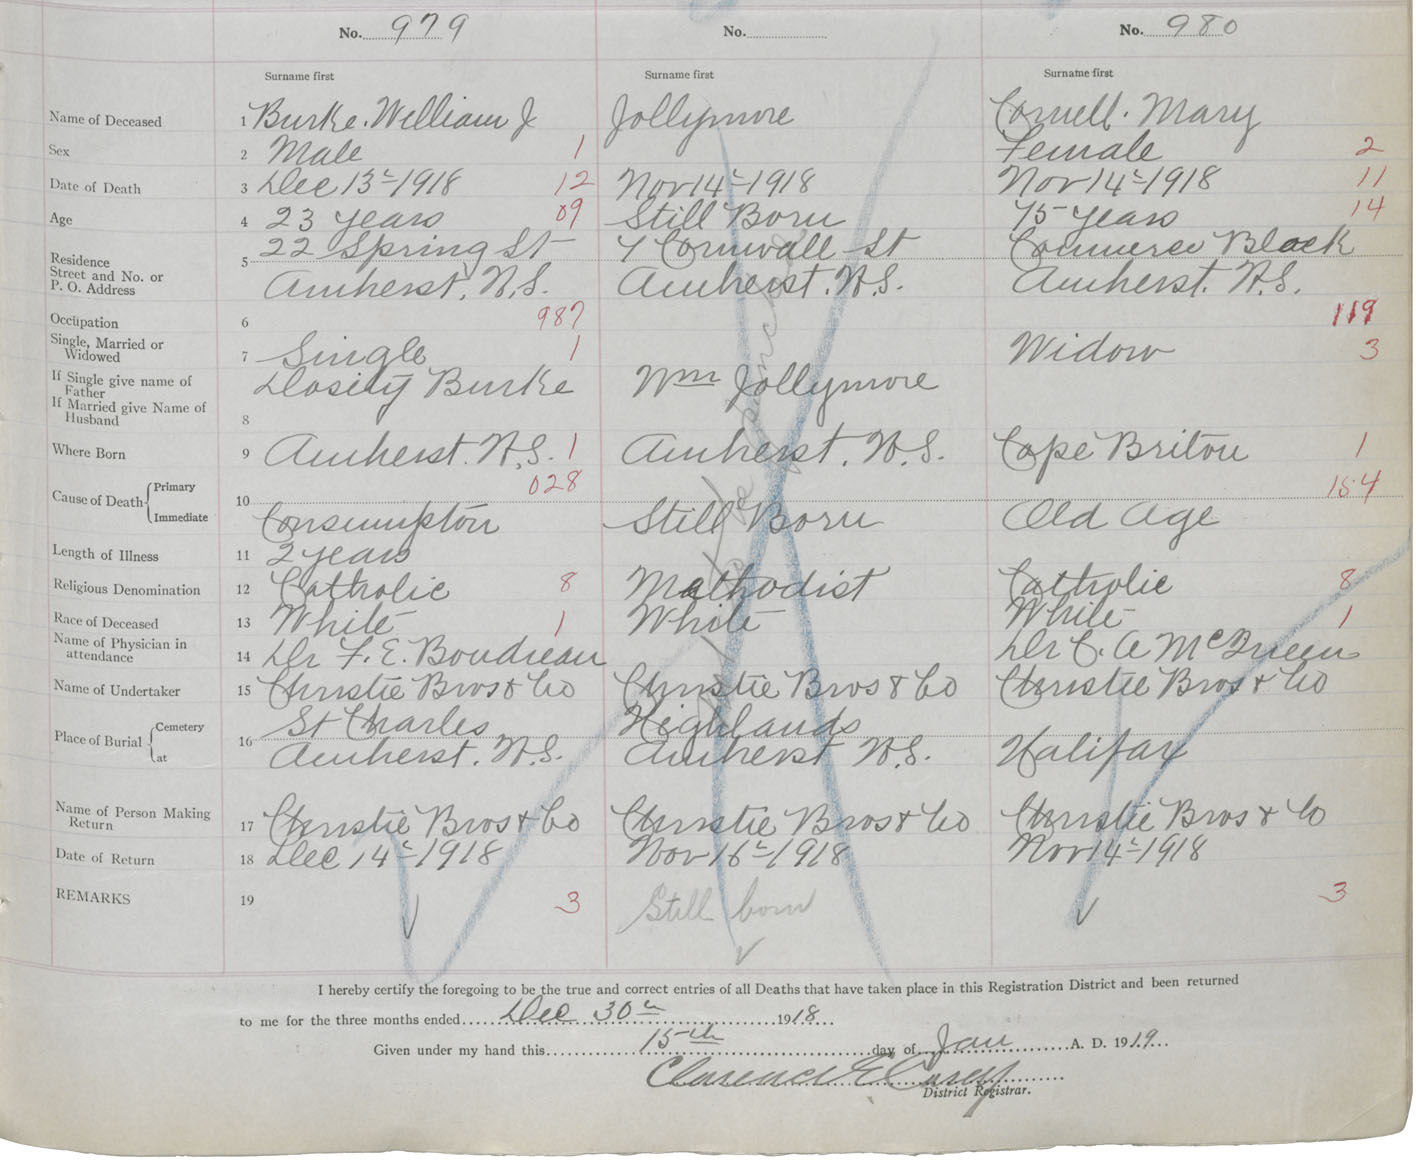 No. 979 No. No. 980
Surname first Surname first Surname first
Name of Deceased 1 Burke. William J Jollymore Cornell. Mary
Sex 2 Male 1 Female 2
Date of Death 3 Dec 13th 1918 12 Nov 14th 1918 Nov 14th 1918 11
Age 4 23 years 09 Still Born 75 years 14
Residence 22 Spring St 7 Cornwall St Commerce Block
Street and No. or 5
P. O. Address Amherst, N.S. Amherst, N.S. Amherst. N.S.
Occupation 6 987 119
Single, Married or
Widowed 7 Single 1 Widow 3
If Single give name of
Father Burke Wm Jollymore
If Married give Name of
Husband 8
Where Born 9 Amherst. N.S. 1 Amherst, N.S. Cape Briton 1
Cause of Death Primary 10 028 154
Immediate Consumpton Still Born Old Age
Length of Illness 11 2 years
Religious Denomination 12 Catholic 8 Methodist Catholic 8
Race of Deceased 13 White 1 White White 1
Name of Physician in
attendance 14 Dr F. E. Boudreau Dr C. A McQueen
Name of Undertaker 15 Christie Bros & Co Christie Bros & Co Christie Bros & Co
Place of Burial Cemetery 16 St Charles Highlands
at Amherst. N.S. Amherst N.S. Halifax
Name of Person Making
Return 17 Christie Bros & Co Christie Bros & Co Christie Bros & Co
Date of Return 18 Dec 14th 1918 Nov 16th 1918 Nov 14th 1918
REMARKS 19 3 Still born 3
I hereby certify the foregoing to be the true and correct entries of all Deaths that have taken place in this Registration District and been returned
to me for the three months ended Dec 30th 1918
Given under my hand this 15th day of Jan A. D. 1919
Clarence E Casey
District Registrar.